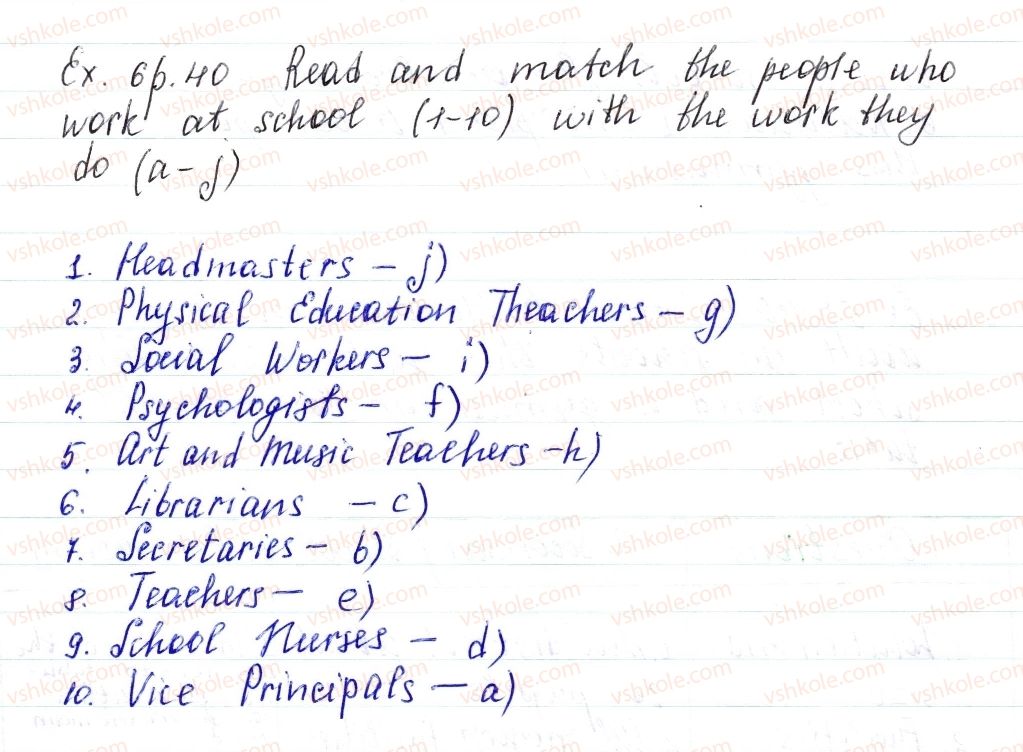 Ex. 6 p. 40 Read and match the people who
work at school (1-10) with the work they
do (a-j)
1. Headmasters - j)
2. Physical Education Theachers - g)
3. Social Workers - i)
4. Psychologists - f)
5. Art and Music Teachers - h)
6. Librarians - c)
7. Secretaries - b)
8. Teachers - e)
9. School Nurses - d)
10. Vice Principals - a)